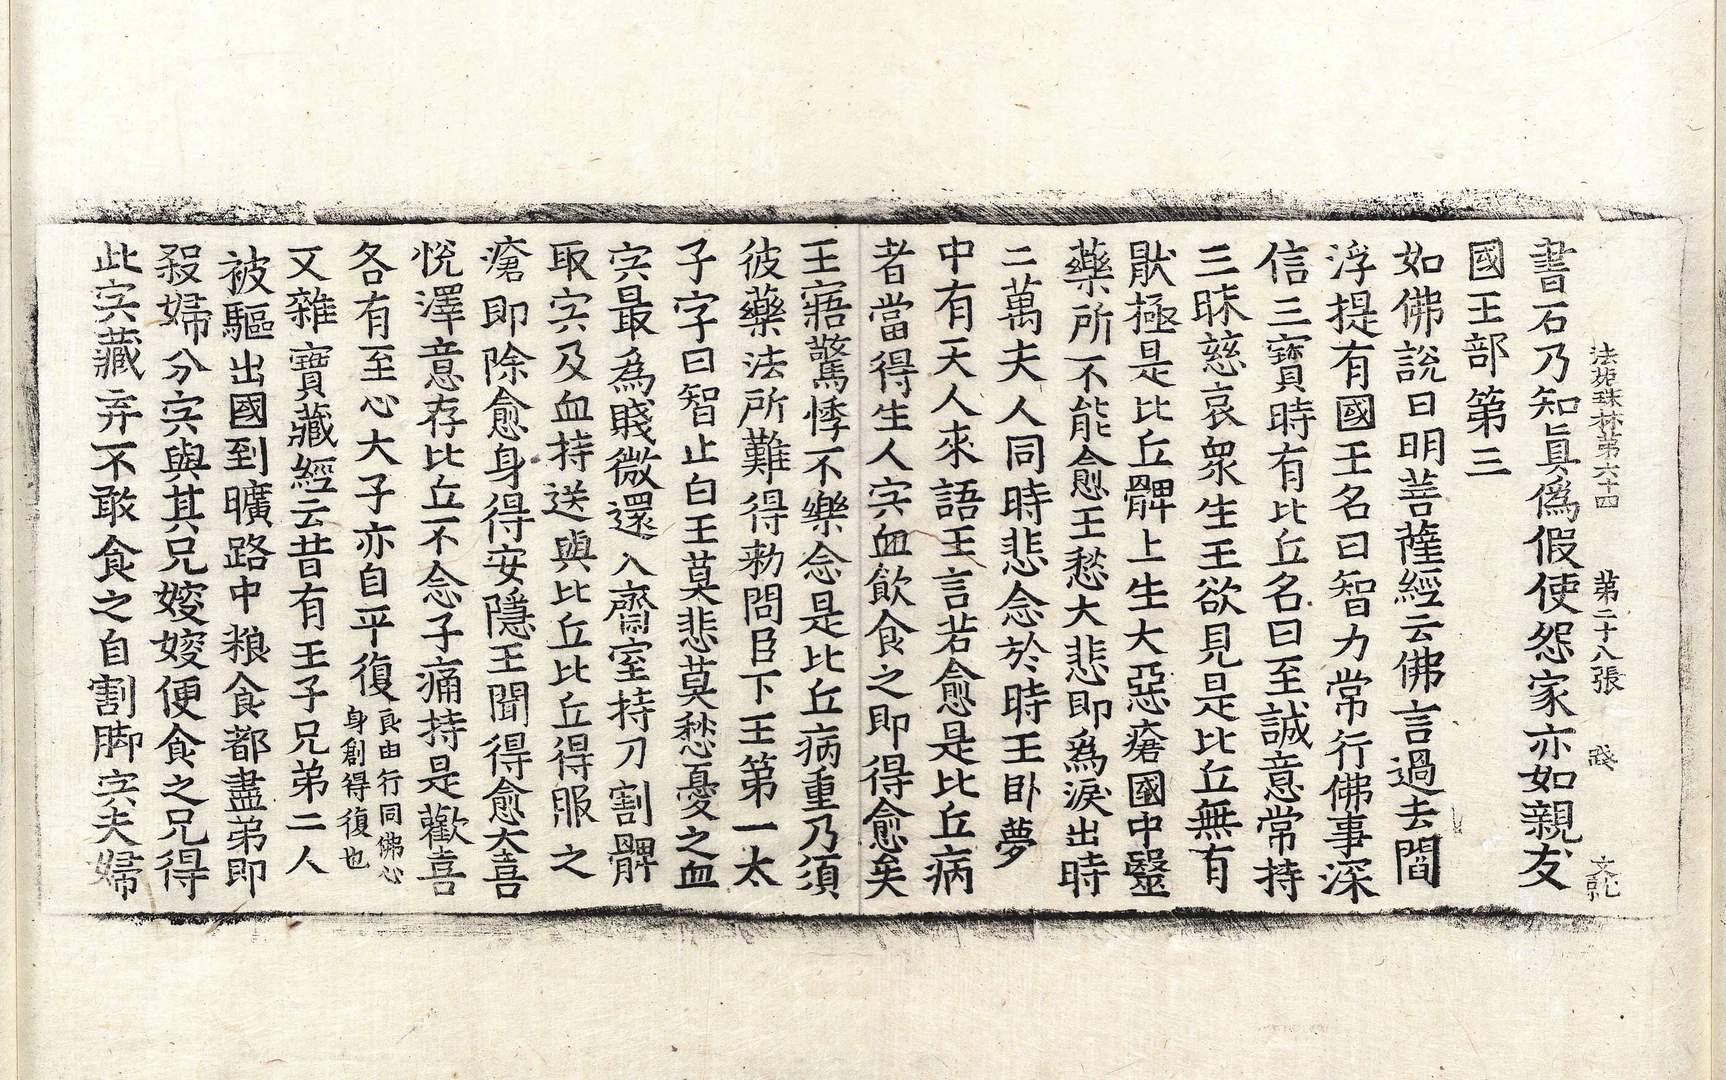 法苑珠林第六十四 第二十八張 踐 文𠃵
書石乃知眞僞假使怨家亦如親友
國王部第三
如佛說日明菩薩經云佛言過去閻
浮提有國王名曰智力常行佛事深
信三寶時有比丘名曰至誠意常持
三昧慈哀衆生王欲見是比丘無有
猒極是比丘髀上生大惡瘡國中醫
藥所不能愈王愁大悲即爲淚出時
二萬夫人同時悲念於時王卧夢
中有天人來語王言若愈是比丘病
者當得生人宍血飲食之即得愈矣
王寤驚悸不樂念是比丘病重乃須
彼藥法所難得勅問臣下王第一太
子字曰智止白王莫悲莫愁憂之血
宍最爲賤微還入齋室持刀割髀
取宍及血持送與比丘比丘得服之
瘡即除愈身得安隱王聞得愈大喜
悅澤意存比丘不念子痛持是歡喜
各有至心大子亦自平復良由行同佛心身創得復也
又雜寶藏經云昔有王子兄弟二人
被驅出國到曠路中粮食都盡弟即
殺婦分宍與其兄嫂嫂便食之兄得
此宍藏弃不敢食之自割脚宍夫婦